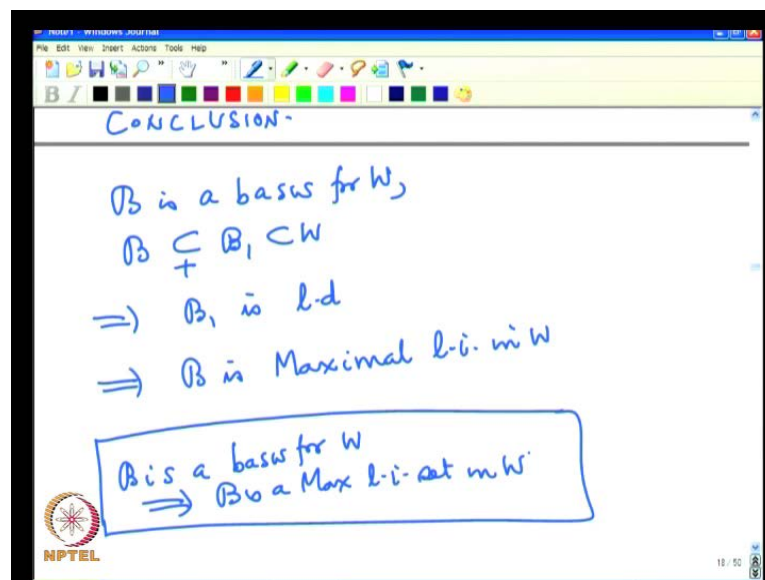 Note1 - Windows Journal
File Edit View Insert Actions Tools Help
B I
CONCLUSION-
B is a basis for W,
B ⊊ B₁ ⊂ W
⟹ B₁ is l-d
⟹ B is Maximal l-i- in W
B is a basis for W
⟹ B is a Max l-i-set in W
NPTEL
18 / 50